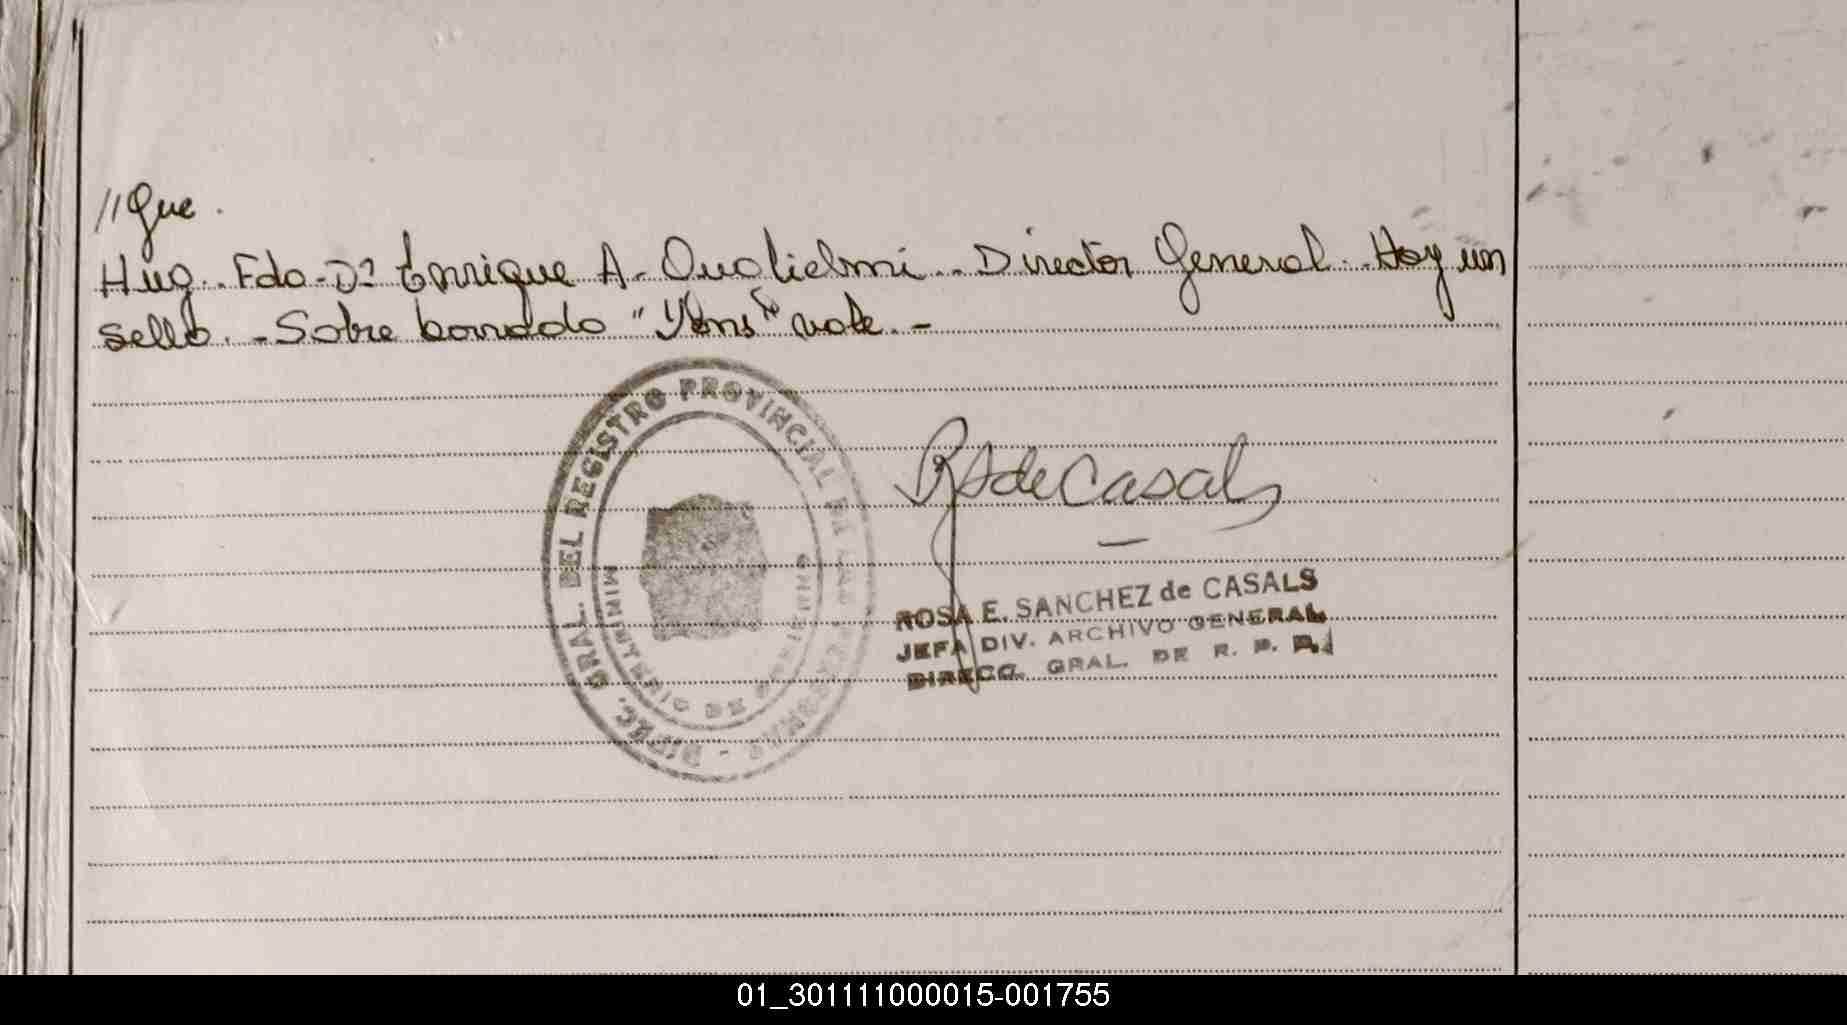 //Que.
Hug. Fdo. Dr Enrique A. Guglielmi. Director General. Hay un
sello. - Sobre borrado " " vale. -
DIREC. GRAL. DEL REGISTRO PROVINCIAL DE LAS PERSONAS
MINISTERIO DE GOBIERNO
RS de Casals
ROSA E. SANCHEZ de CASALS
JEFA DIV. ARCHIVO GENERAL
DIRECC. GRAL. DE R. P. P.
01_301111000015-001755